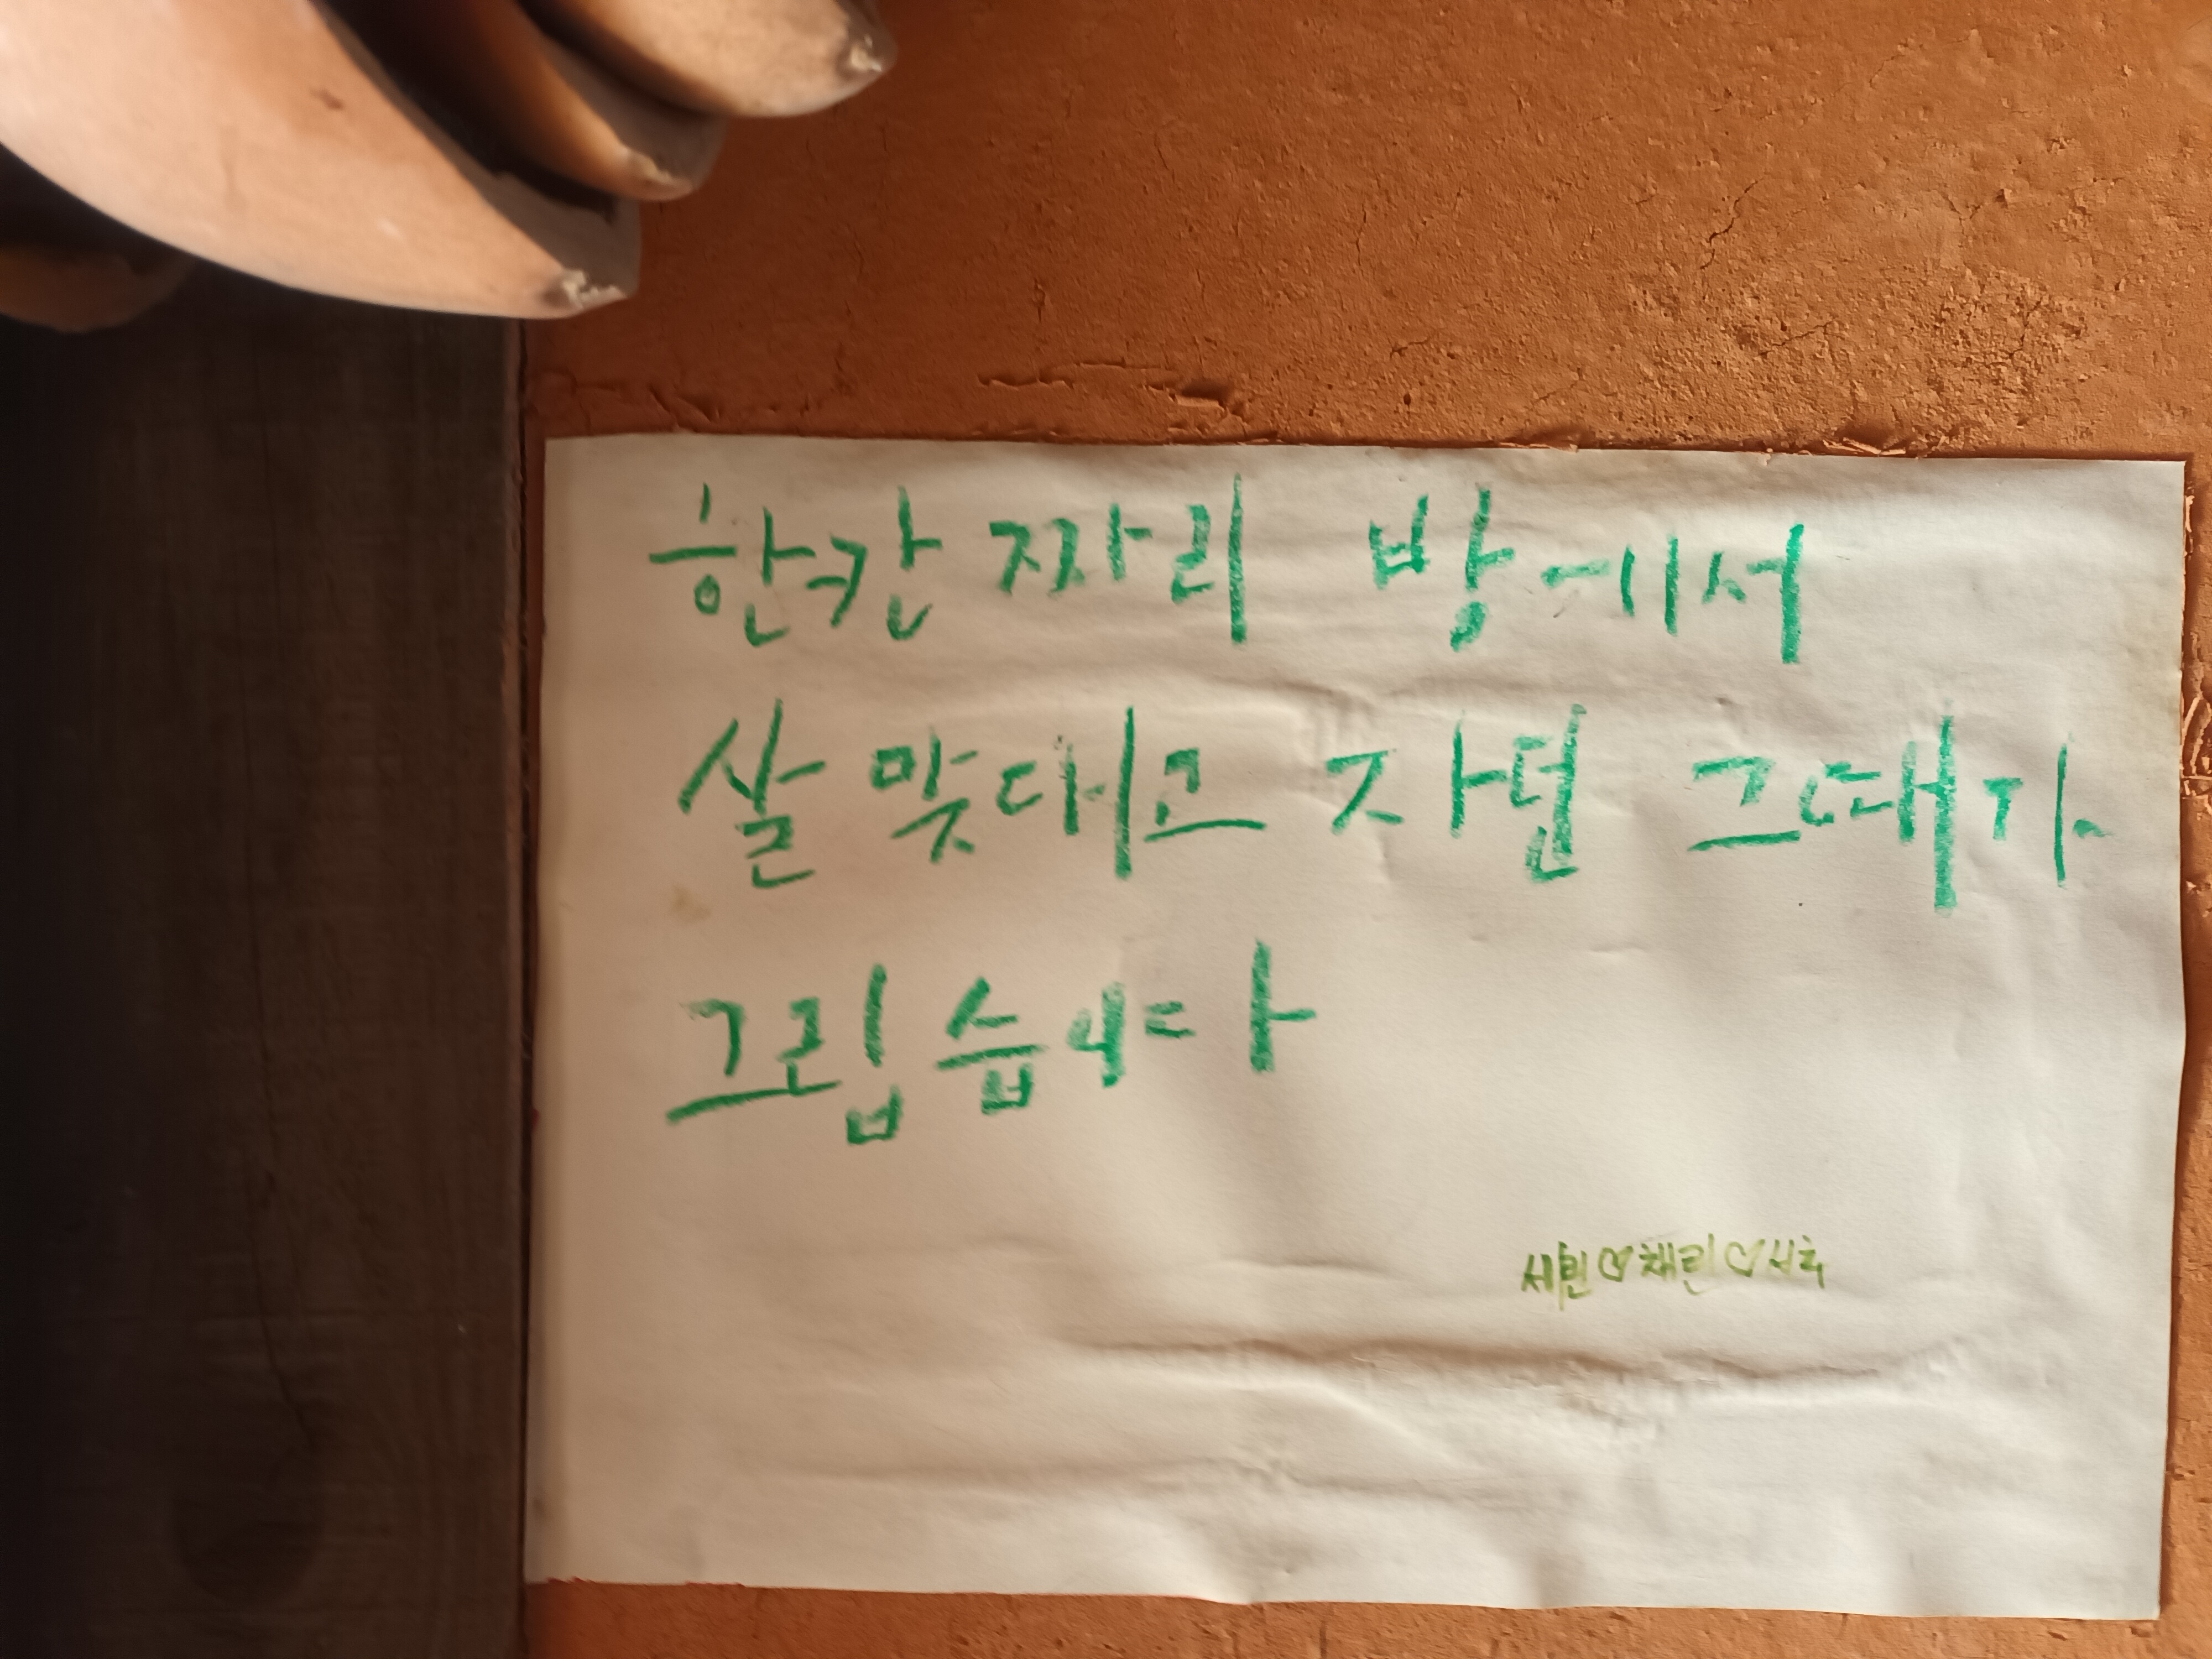 한칸 짜리 방에서
살 맞대고 자던 그때가
그립습니다
세빈♡채린♡서희